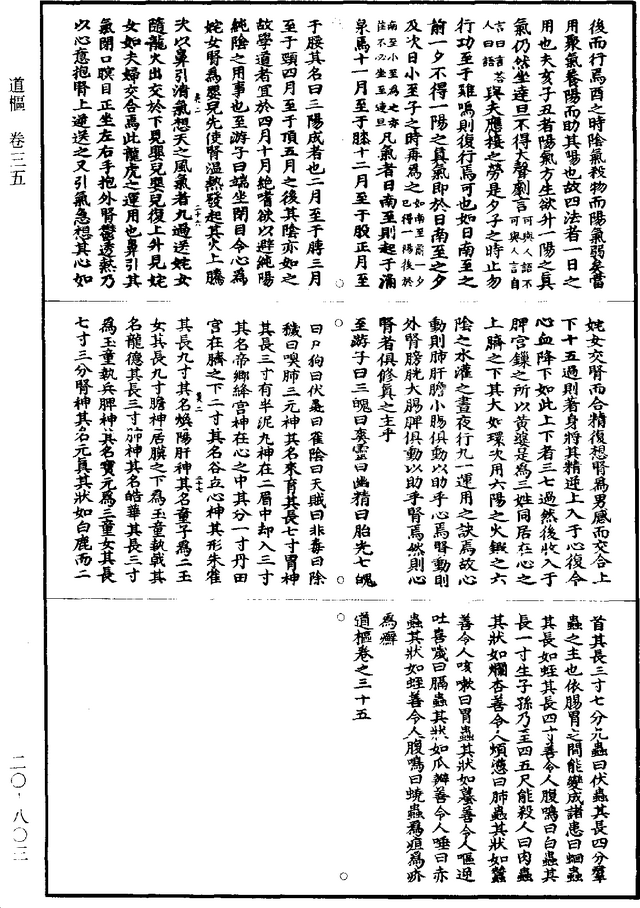 道樞　卷三五
二〇・八〇三
後而行焉酉之時陰氣殺物而陽氣弱矣當
用聚氣養陽而助其陽也故四法者一日之
用也夫亥子丑者陽氣方生欲升一陽之真
氣仍然坐達旦不得大聲劇言可與人語不可與人言自言曰言答人曰語與夫應接之勞是夕子之時止勿
行功至于雞鳴則復行焉可也如日南至之
前一夕不得一陽之真氣即於日南至之夕
及次日小至子之時再為之如南至前一夕已得一陽後於南至小至為之亦陞不必坐至達旦凡氣者日南至則起于涌
泉焉十一月至于膝十二月至于股正月至
于腰其名曰三陽成者也二月至于膊三月
至于頸四月至于頂五月之後其陰亦如之
故學道者宜於四月十月絶嗜欲以避純陽
純陰之用事也至游子曰端坐閉目令心為
姹女腎為嬰兒先使腎溫熱發起其火上騰
次以鼻引清氣想天之風氣者九過送姹女
隨龍火出交於下見嬰兒嬰兒復上升見姹
女如夫婦交合焉此龍虎之運用也鼻引其
氣閉口瞑目正坐左右手抱外腎鬱透熱乃
以心意抱腎上遞送之又引氣急想其心如
姹女交腎而合精復想腎為男感而交合上
下十五過則著身將其精遞上入于心復令
心血降下如此上下者三七過然後收入于
脾宮鏁之所以黃婆是為三姓同居在心之
上臍之下其大如環次用六陽之火鍛之六
陰之水灌之晝夜行九一運用之訣焉故心
動則肺肝膽小腸俱動以助乎心焉腎動則
外腎膀胱大腸脾俱動以助乎腎焉然則心
腎者俱修真之主乎
至游子曰三魄曰爽靈曰幽精曰胎光七魄
曰尸狗曰伏矢曰雀陰曰天賊曰非毒曰除
穢曰嗅肺三元神其名來育其長七寸胃神
其長三寸有半泥丸神在二眉中却入三寸
其名帝鄉絳宮神在心之中其分一寸丹田
宮在臍之下二寸其名谷立心神其形朱雀
其長九寸其名煥陽肝神其名童子為二玉
女其長九寸膽神居膜之下為玉童執戟其
名龍德其長三寸肺神其名皓華其長三寸
為玉童執兵脾神其名寶元為三童女其長
七寸三分腎神其名元真其狀如白鹿而二
首其長三寸七分九蟲曰伏蟲其長四分羣
蟲之主也依腸胃之間能變成諸患曰蛔蟲
其長如蛭其長四寸善令人腹鳴曰白蟲其
長一寸生子孫乃至四五尺能殺人曰肉蟲
其狀如爛杏善令人煩懣曰肺蟲其狀如蠶
善令人咳嗽曰胃蟲其狀如蟇善令人嘔逆
吐喜噦曰膈蟲其狀如瓜瓣善令人唾曰赤
蟲其狀如蛭善令人腹鳴曰蟯蟲為疽為疥
為癬
道樞卷之三十五